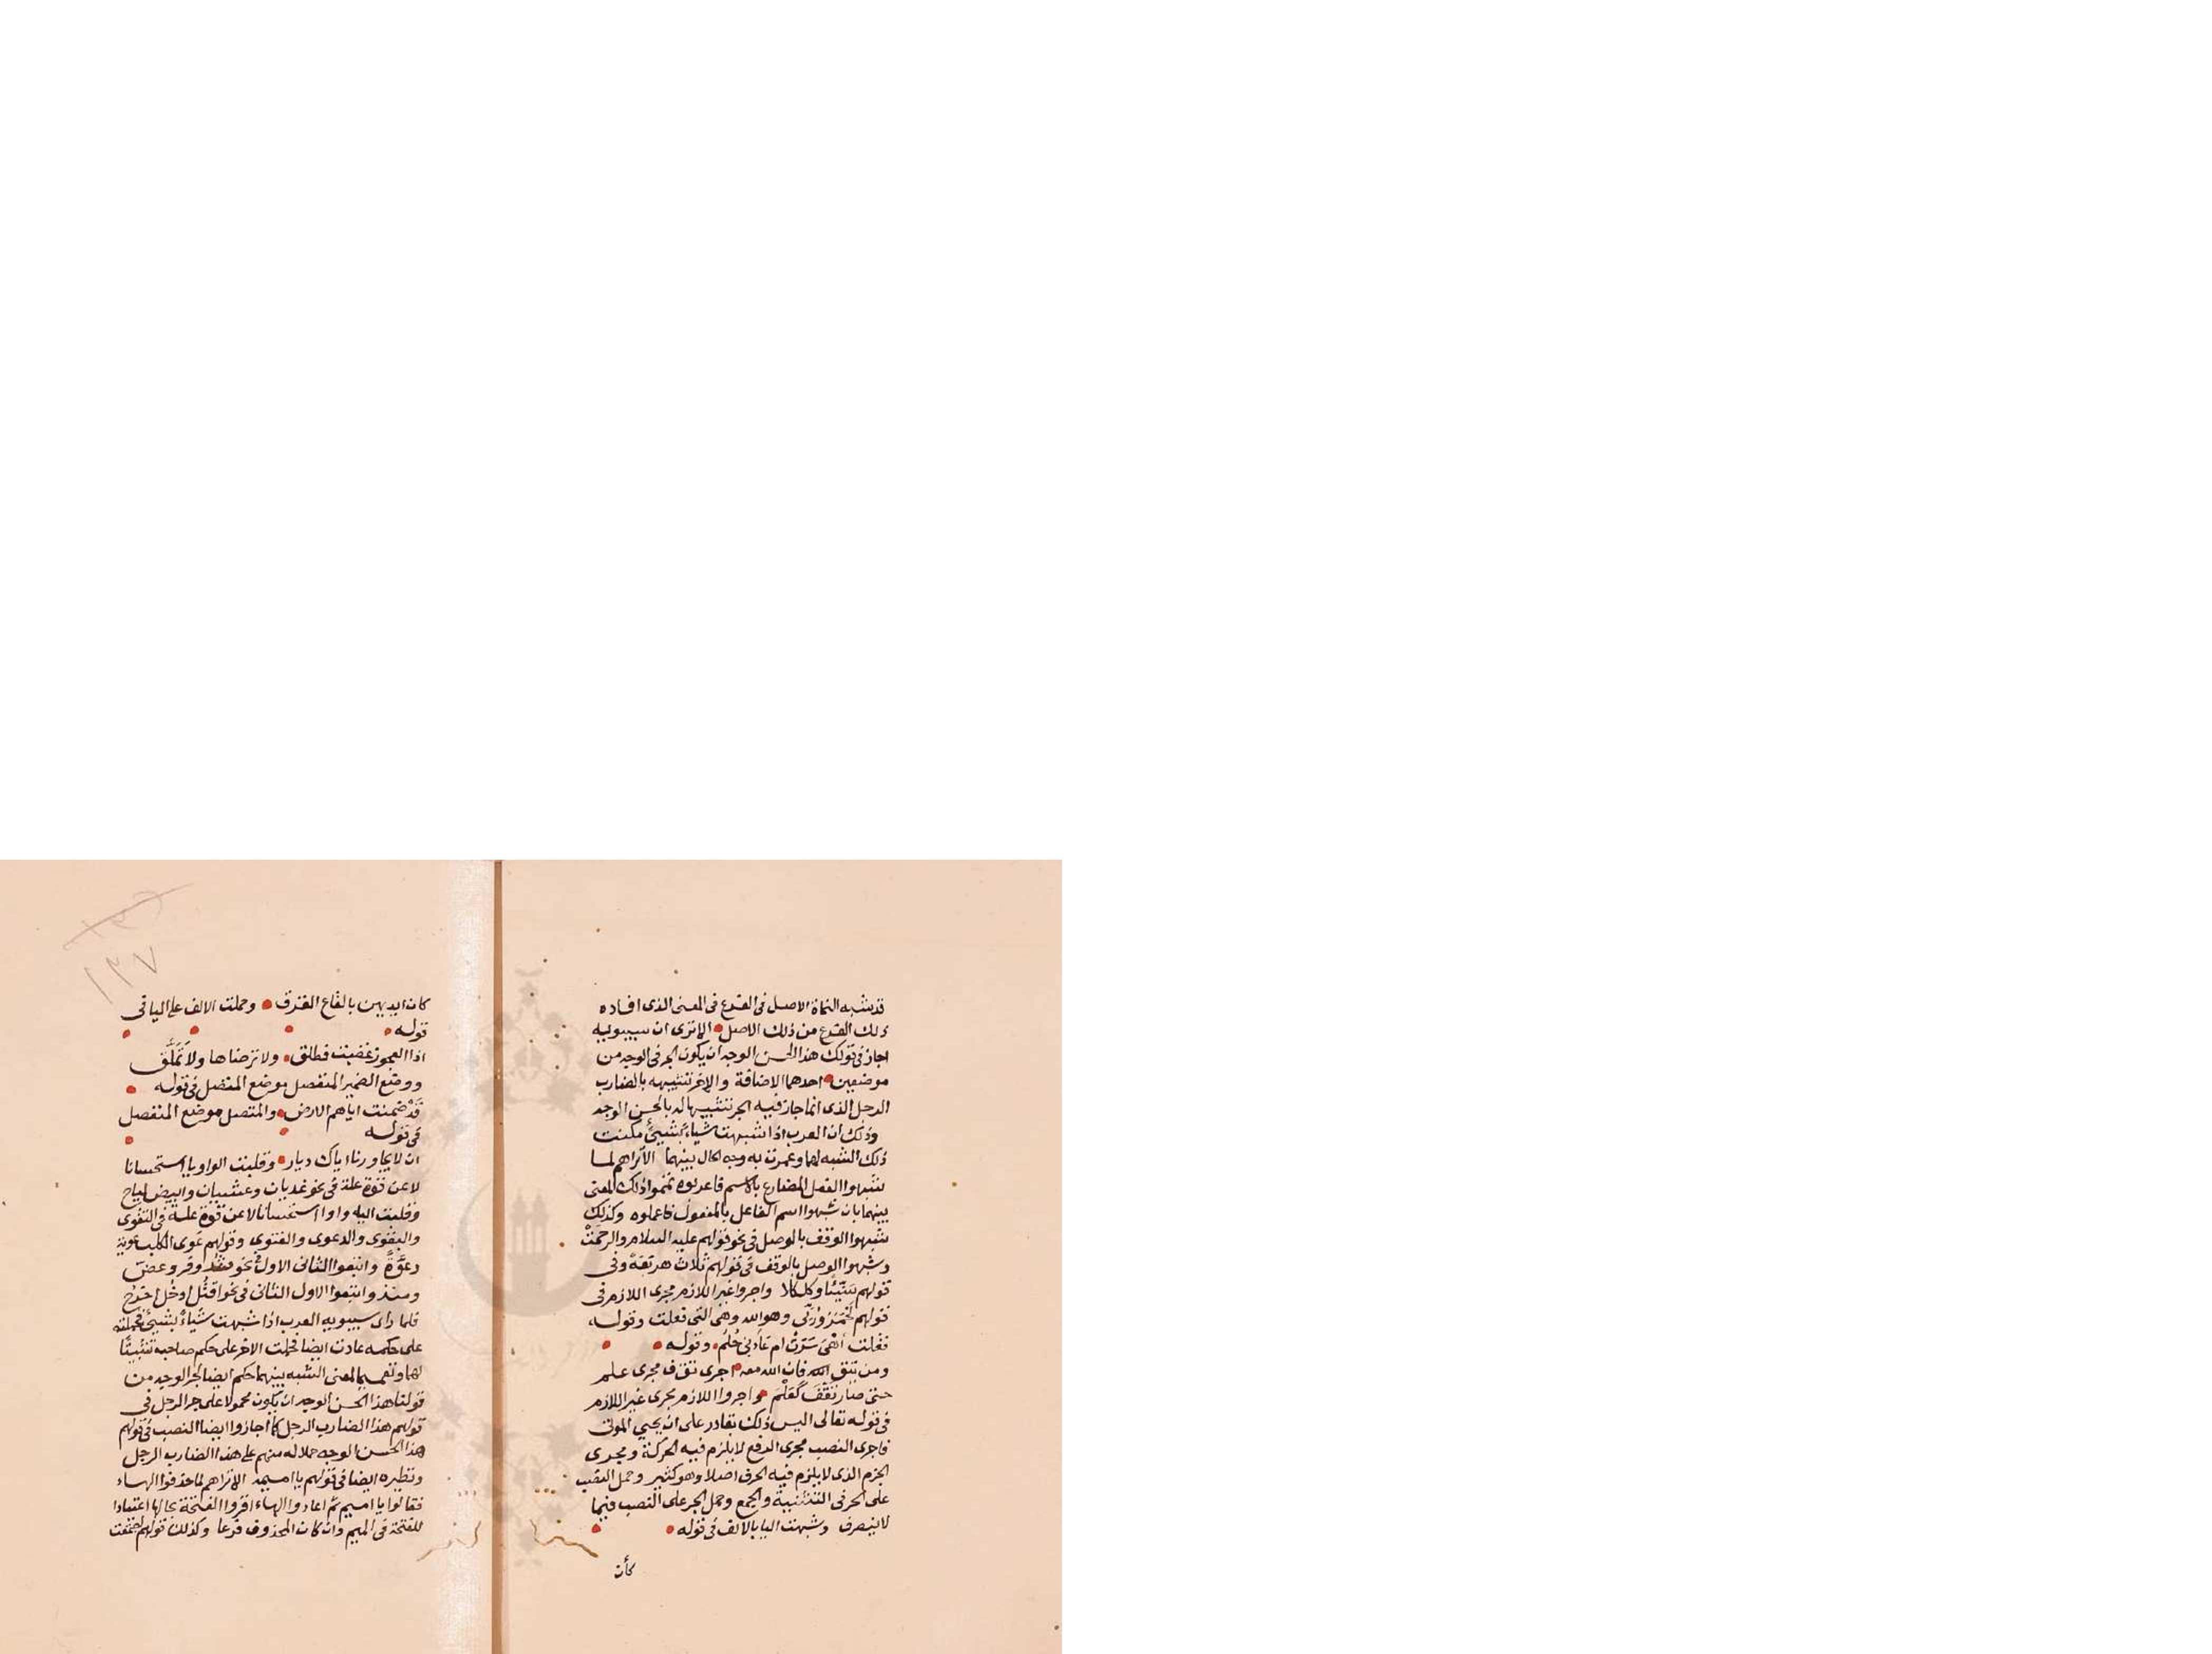 قد شبه النحاة الاصل فى الفرع فى المعنى الذى افاده
ذلك الفرع من ذلك الاصل الا ترى ان سيبويه
اجاز فى قولك هذا الحسن الوجه ان يكون الجر فى الوجه من
موضعين احدهما الاضافة والاخر تشبيهه بالضارب
الرجل الذى انما جاز فيه الجر تشبيها له بالحسن الوجه
وذلك ان العرب اذا شبهت شياء بشيئ مكنت
ذلك الشبه لهما وعمرت به وجه الحال بينهما الا تراهم لما
شبهوا الفعل المضارع بالاسم فاعربوه تمموا ذلك المعنى
بينهما بان شبهوا اسم الفاعل بالمفعول فاعملوه وكذلك
شبهوا الوقف بالوصل فى نحو قولهم عليه السلام والرحمت
وشبهوا الوصل بالوقف فى قولهم ثلاث هربعة وفى
قولهم وكلكلا واجروا غير اللازم مجرى اللازم فى
قولهم وهو الله وهى التى فعلت وقوله
فقلت أهْىَ سَرَتْ ام عَادَنى حُلُم وقوله
ومن يتق الله فان الله معه اجرى تقف مجرى علم
حتى صار تَقْفَ كَعَلْمَ واجروا اللازم مجرى غير اللازم
فى قوله تعالى اليس ذلك بقادر على ان يحيي الموتى
فاجرى النصب مجرى الرفع لا يلزم فيه الحركة ومجرى
الجزم الذى لا يلزم فيه الحرف اصلا وهو كثير وحمل النصب
على الجر فى التثنية والجمع وحمل الجر على النصب فيما
لا ينصرف وشبهت اليا بالالف فى قوله
كأن
١٣٧
كان ايديهن بالقاع القرق وحملت الالف على اليا فى
قوله
اذا العجوز غضبت فطلق ولا ترضاها ولا تَمَلَّق
ووضع الضمير المنفصل موضع المتصل فى قوله
قَدْ ضمنت اياهم الارض والمتصل موضع المنفصل
فى قوله
ان لا يجاورنا اياك ديار وقلبت الواو يا استحسانا
لا عن قوة علة فى نحو غديان وعشيان وابيض لياح
وقلبت اليا واوا استحسانا لا عن قوة علة فى التقوى
والبقوى والدعوى والفتوى وقولهم عوى الكلب عوية
وعَوَّةً واتبعوا الثانى الاول فى نحو شد وفر وعض
ومنذ واتبعوا الاول الثانى فى نحو اقتُل ادخُل اخرُج
فلما راى سيبويه العرب اذا شبهت شياء بشيئ فحملته
على حكمه عادت ايضا فحملت الاخر على حكم صاحبه تثبيتا
لهما وتعميما لمعنى الشبه بينهما حكم ايضا لجر الوجه من
قولنا هذا الحسن الوجه ان يكون محمولا على جر الرجل فى
قولهم هذا الضارب الرجل كما اجازوا ايضا النصب فى قولهم
هذا الحسن الوجه حملا له منهم على هذا الضارب الرجل
ونظيره ايضا فى قولهم يا اميمة الا تراهم لما حذفوا الهاء
فقالوا يا اميم ثم اعادوا الهاء اقروا الفتحة بحالها اعتيادا
للفتحة فى الميم وان كان المحذوف فرعا وكذلك قولهم اجتمعت